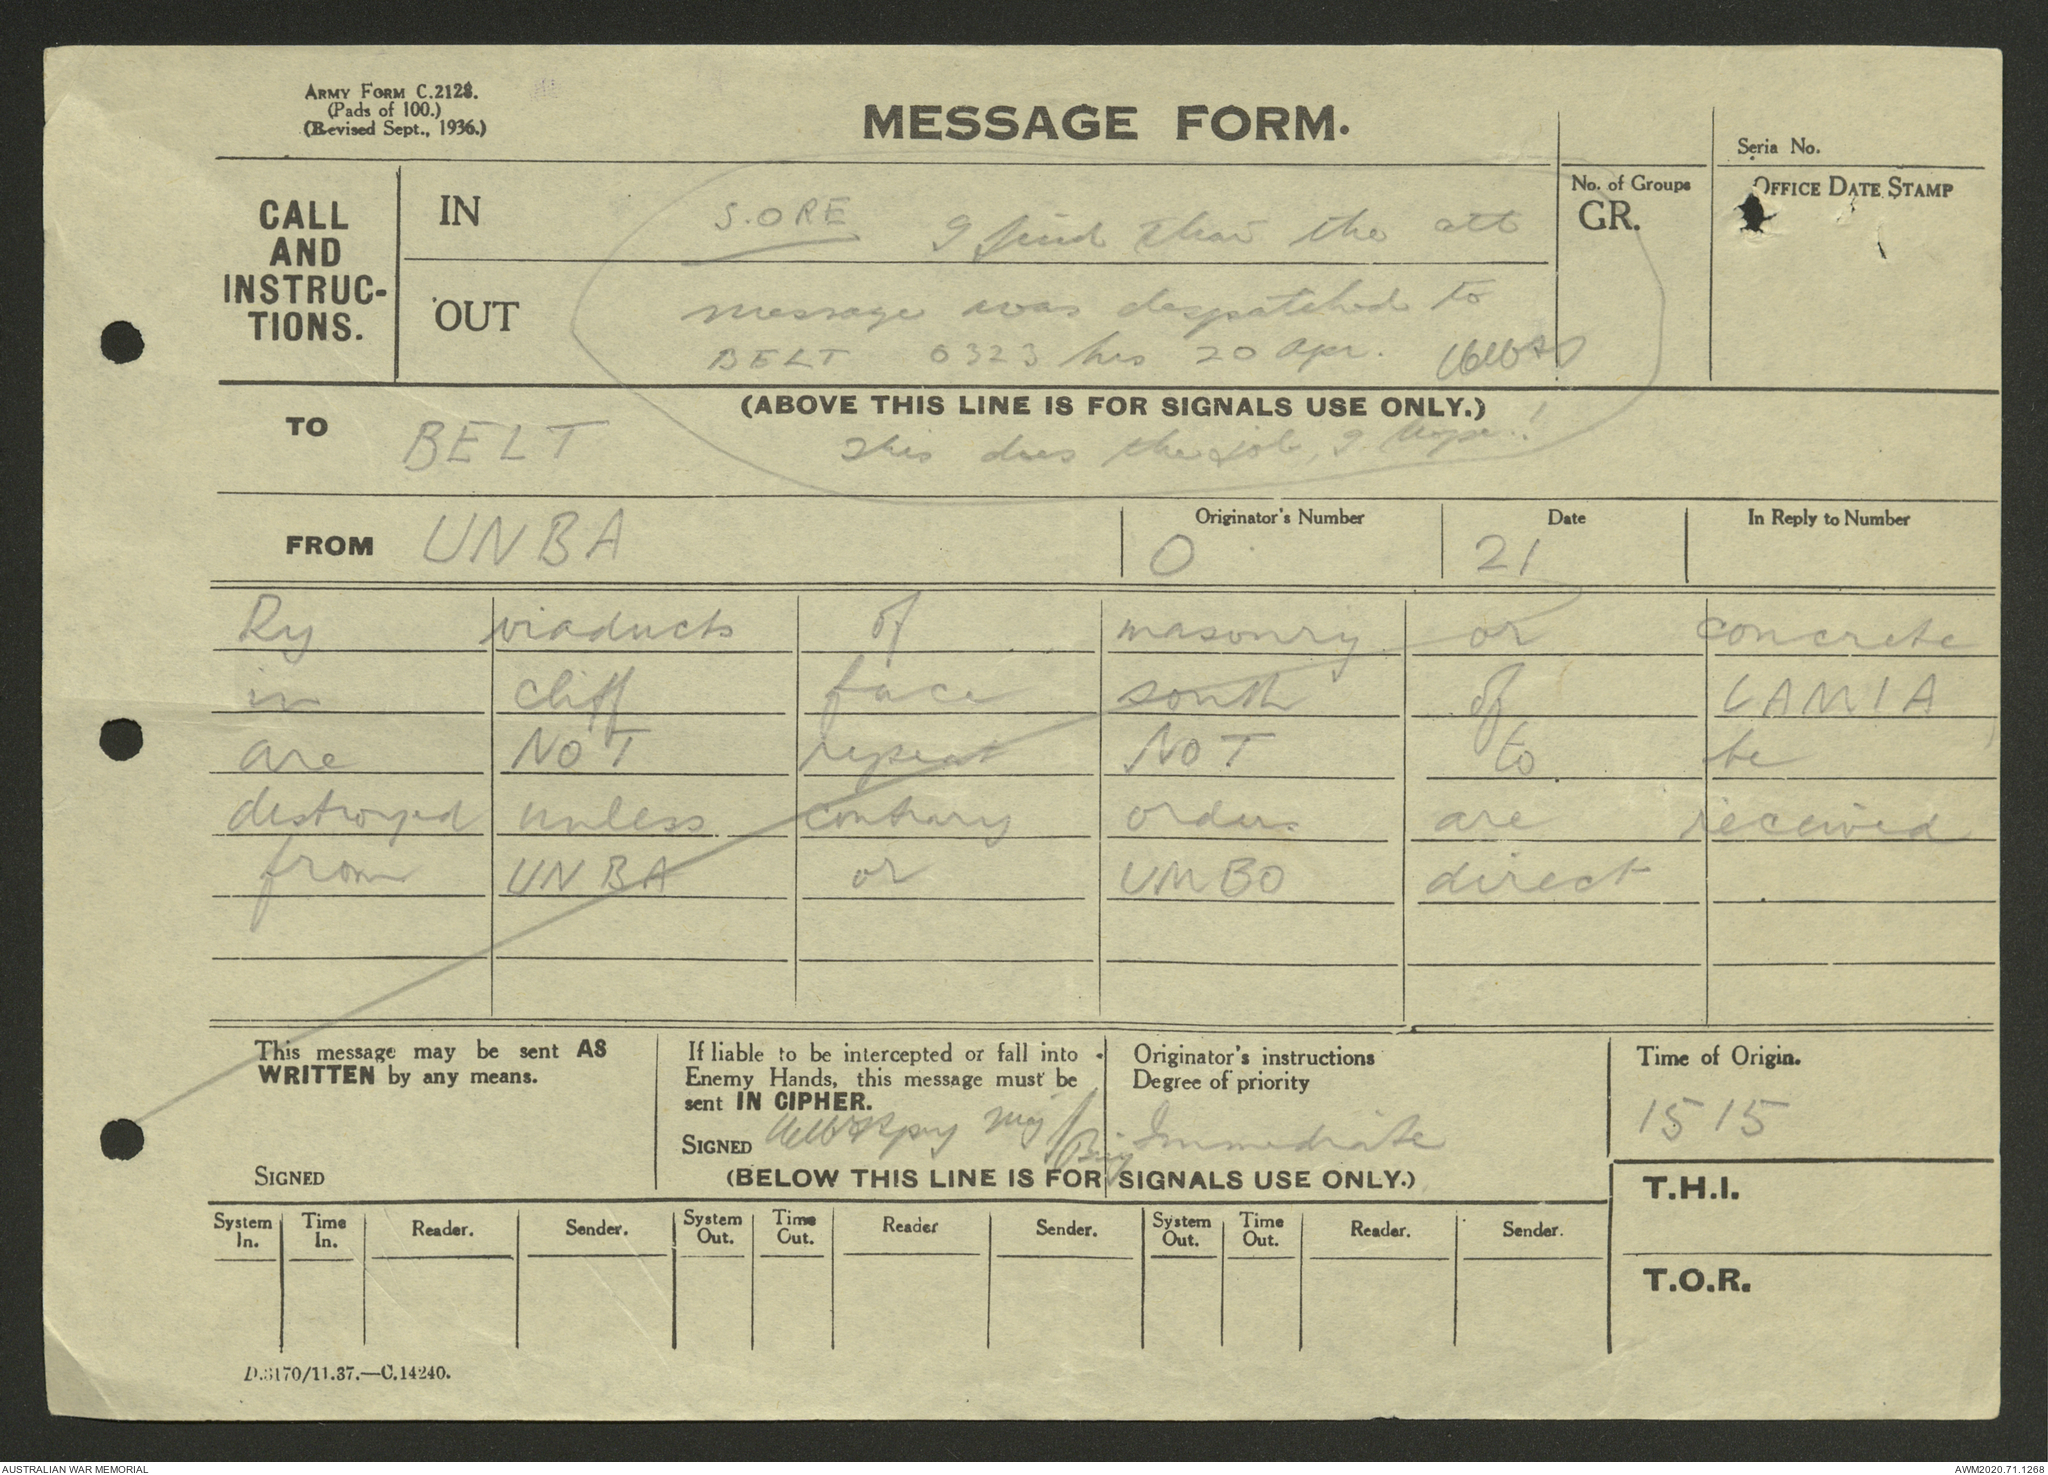 ARMY FORM C.2128.
(Pads of 100.)
(Revised Sept., 1936.)
MESSAGE FORM.
Seria No.
CALL
AND
INSTRUC-
TIONS.
IN
OUT
No. of Groups
GR.
OFFICE DATE STAMP
S.ORE I find that the att
message was despatched to
BELT 0323 hrs 20 Apr.
(ABOVE THIS LINE IS FOR SIGNALS USE ONLY.)
This does the job, I hope!
TO BELT
FROM UNBA
Originator's Number
0
Date
21
In Reply to Number
Ry viaducts of masonry or concrete
in cliff face south of LAMIA
are NOT repeat NOT to be
destroyed unless contrary orders are received
from UNBA or UMBO direct
This message may be sent AS
WRITTEN by any means.
SIGNED
If liable to be intercepted or fall into
Enemy Hands, this message must be
sent IN CIPHER.
SIGNED Maj
Originator's instructions
Degree of priority
Immediate
Time of Origin.
1515
(BELOW THIS LINE IS FOR SIGNALS USE ONLY.)
T.H.I.
T.O.R.
System In. Time In. Reader. Sender. System Out. Time Out. Reader Sender. System Out. Time Out. Reader. Sender.
D.3170/11.37.—C.14240.
AUSTRALIAN WAR MEMORIAL
AWM2020.71.1268